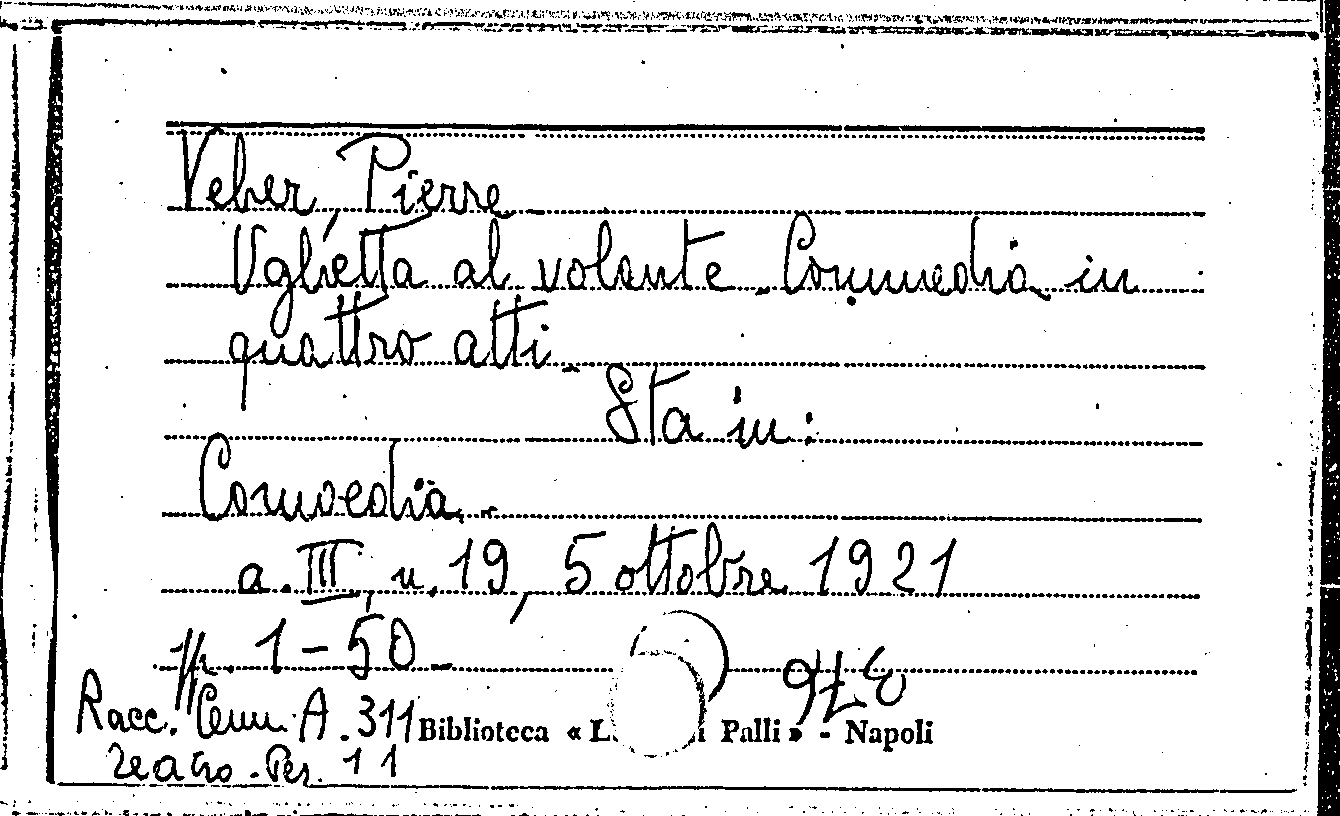 Veber, Pierre
Ughetta al volante. Commedia in
quattro atti.
Sta in:
Comoedia.
a. III, n. 19, 5 ottobre 1921
pp. 1-50.
Racc. A. 311 Biblioteca « L. i Palli » - Napoli
Teatro. Per. 11